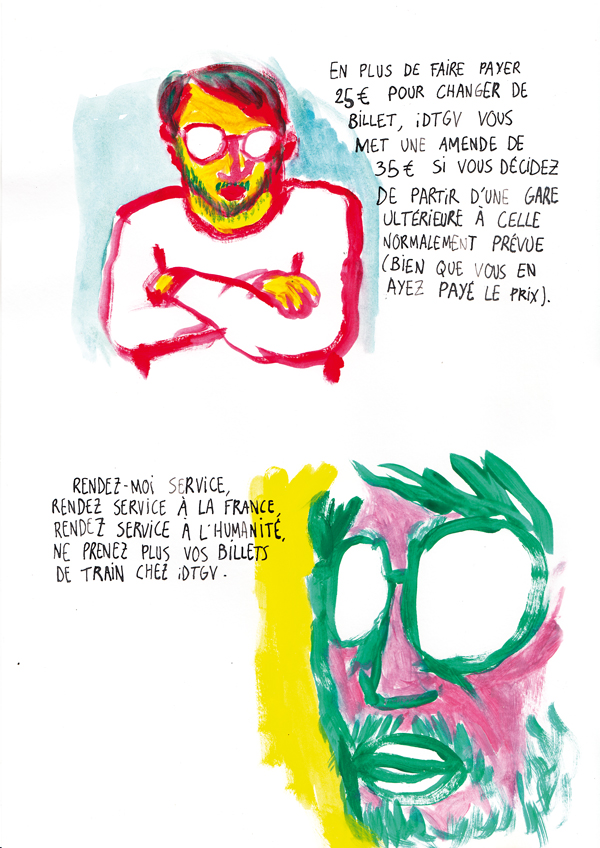 EN PLUS DE FAIRE PAYER
25€ POUR CHANGER DE
BILLET, iDTGV VOUS
MET UNE AMENDE DE
35€ SI VOUS DÉCIDEZ
DE PARTIR D'UNE GARE
ULTÉRIEURE À CELLE
NORMALEMENT PRÉVUE
(BIEN QUE VOUS EN
AYEZ PAYÉ LE PRIX).
RENDEZ-MOI SERVICE,
RENDEZ SERVICE À LA FRANCE,
RENDEZ SERVICE À L'HUMANITÉ,
NE PRENEZ PLUS VOS BILLETS
DE TRAIN CHEZ iDTGV.